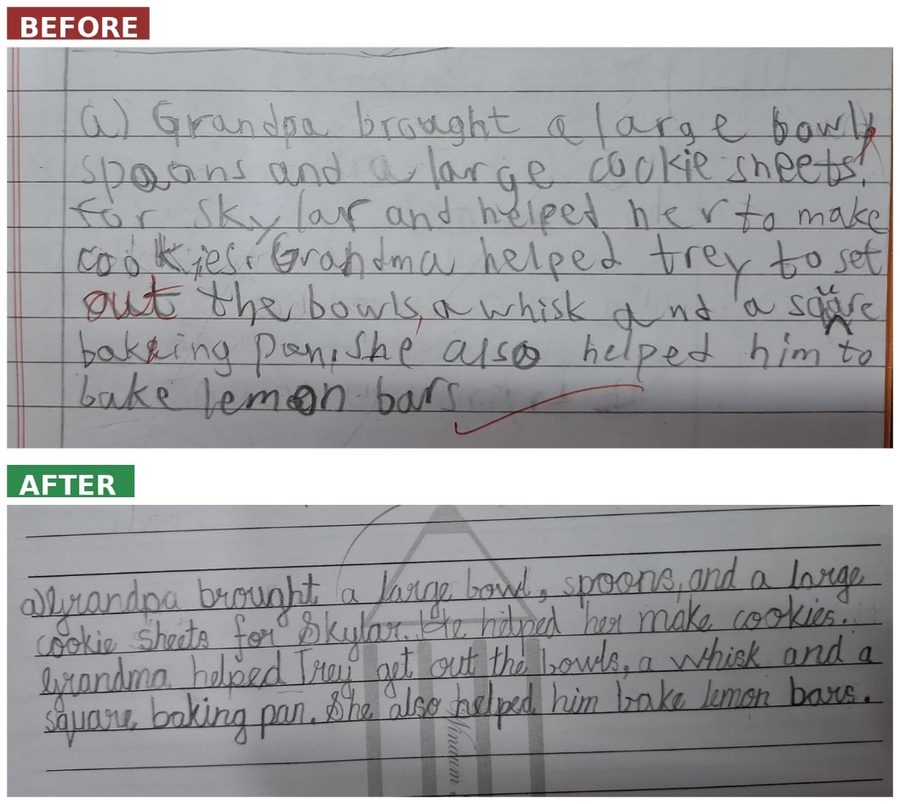 BEFORE
a) Grandpa brought a large bowl,
spoons and a large cookie sheets,
for Skylar and helped her to make
cookies. Grandma helped trey to set
out the bowls, a whisk and a square
bakking pan, she also helped him to
bake lemon bars
AFTER
a) Grandpa brought a large bowl, spoons, and a large
cookie sheets for Skylar. He helped her make cookies.
Grandma helped Trey get out the bowls, a whisk and a
square baking pan. She also helped him bake lemon bars.